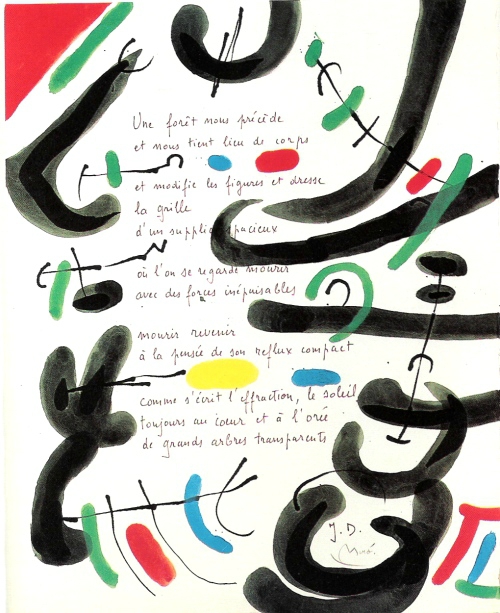 Une forêt nous précède
et nous tient lieu de corps
et modifie les figures et dresse
la grille
d'un supplice spacieux
où l'on se regarde mourir
avec des forces inépuisables
mourir revenir
à la pensée de son reflux compact
comme s'écrit l'effraction, le soleil
toujours au cœur et à l'orée
de grands arbres transparents
J. D.
Miró.